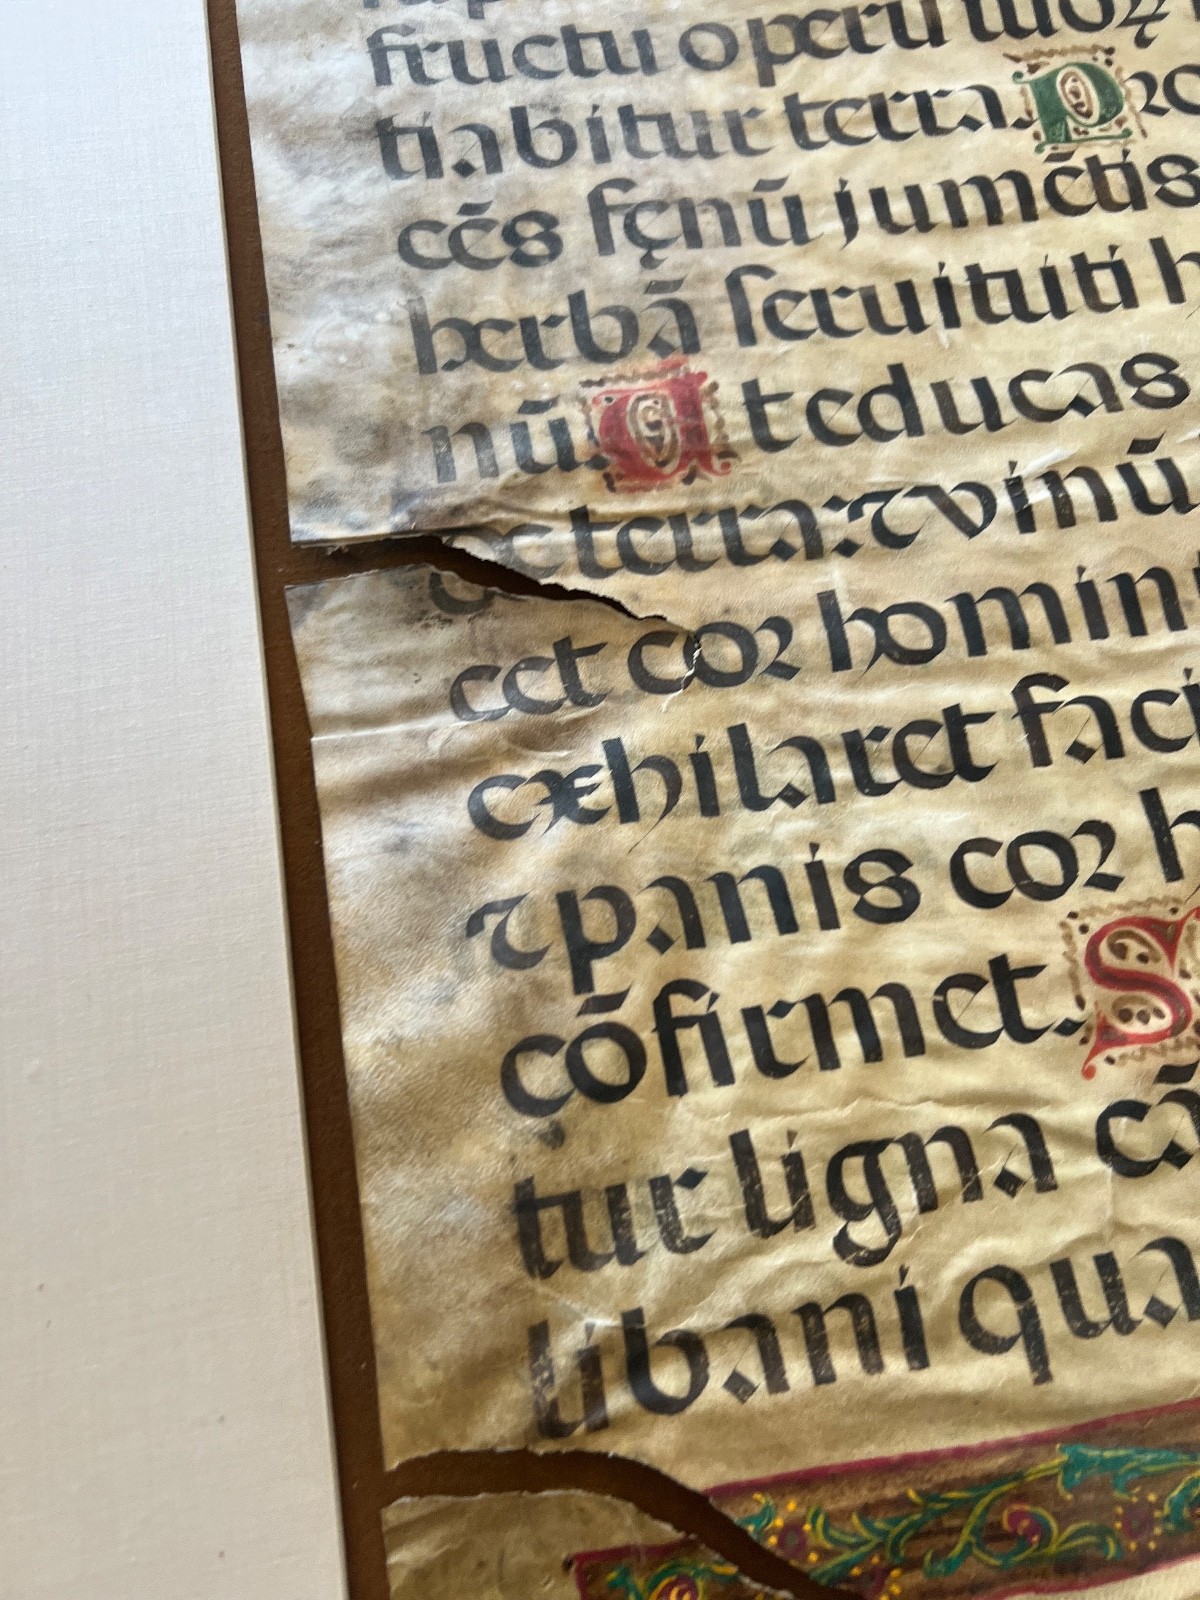 fructu operu tuoꝝ
tiabitur terra. Pro
ces̄ fęnū jumētis
herbā ſeruituti h
nū. Ut educas
de terra: ⁊ vinū
cet cor homin
exhilaret faci
⁊ panis cor h
cōfirmet. S
tur ligna cā
libani qua